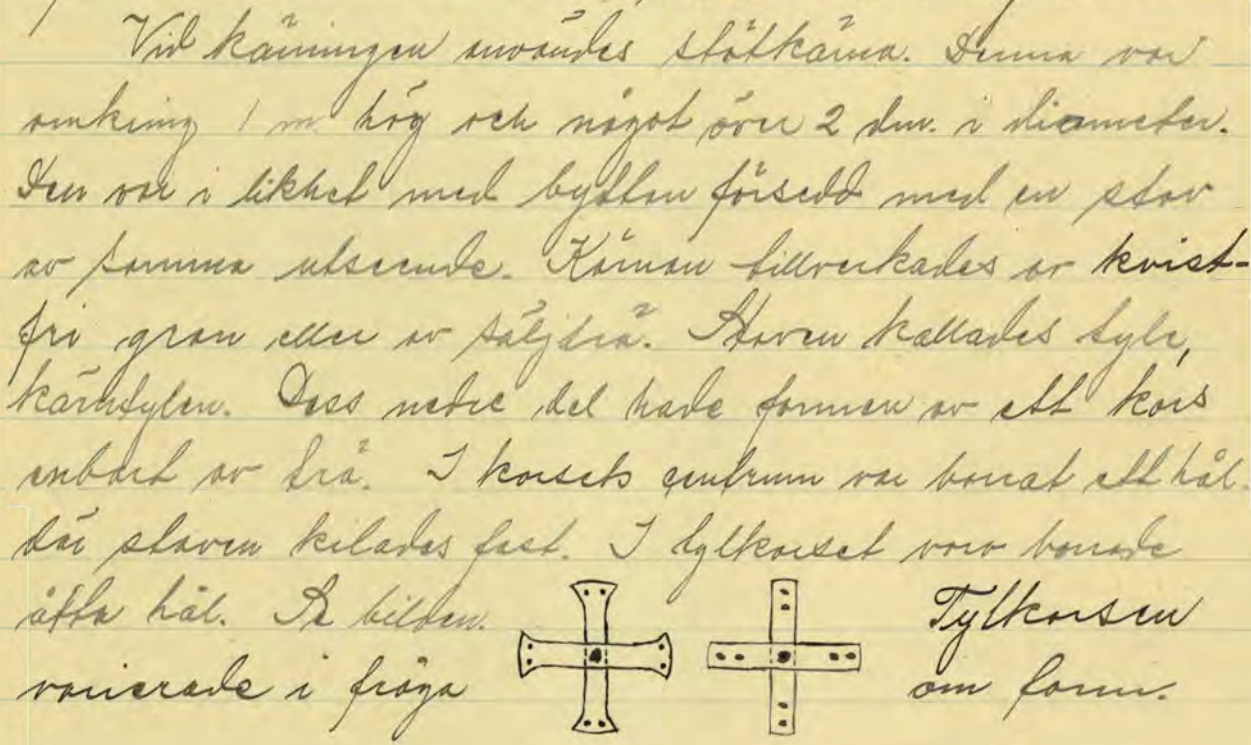 Vid kärningen användes stötkärna. Denna var
omkring 1 m. hög och något över 2 dm. i diameter.
Den var i likhet med byttan försedd med en stav
av samma utseende. Kärnan tillverkades av kvist-
fri gran eller av säljträ. Staven kallades tyle,
kärntylen. Dess nedre del hade formen av ett kors
enbart av trä. I korsets centrum var borrat ett hål.
där staven kilades fast. I tylkorset voro borrade
åtta hål. Se bilden. Tylkorsen
varierade i fråga om form.